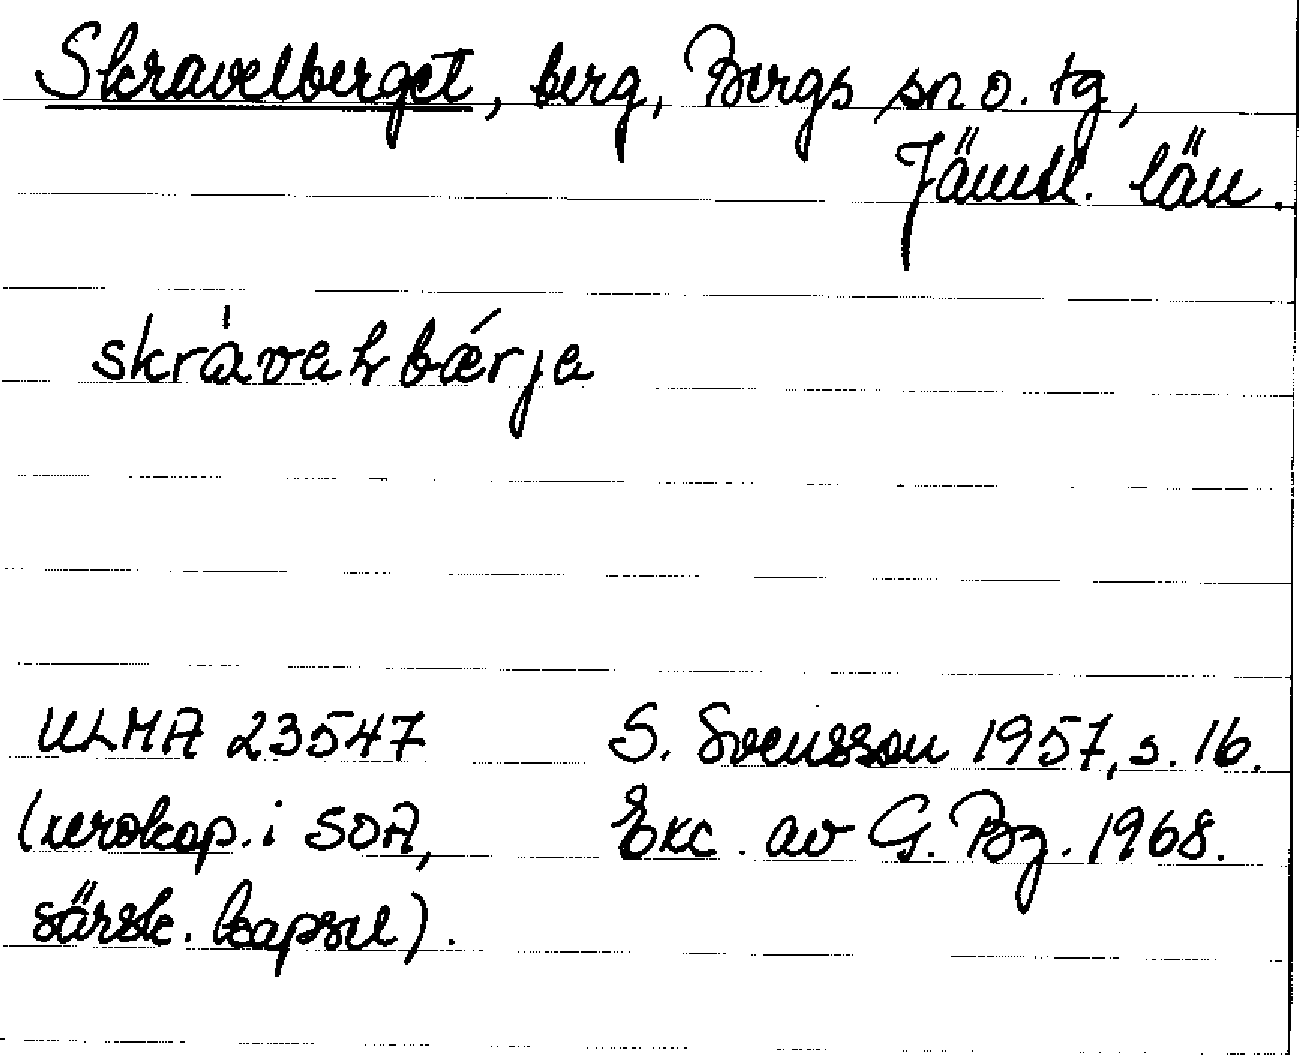 Skravelberget, berg, Bergs sn o. tg,
Jämtl. län.
skràvahbǽrja
ULMA 23547 S. Svensson 1957, s. 16.
(xerokop. i SOA, Exc. av G. Bg. 1968.
särsk. kapsel).